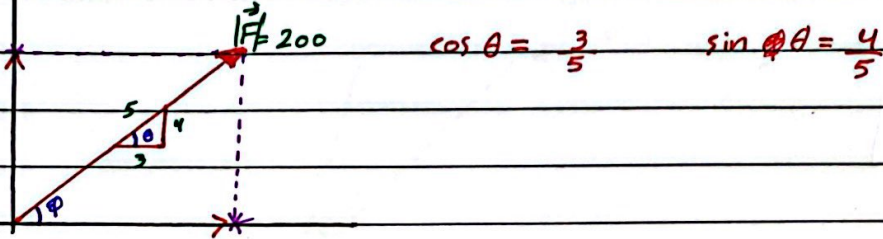 |F⃗|= 200
cos θ = 3/5
sin θ = 4/5
5
4
θ
3
φ